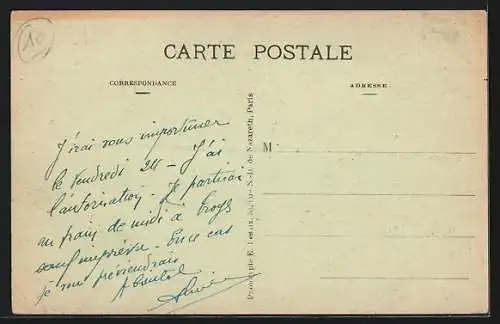 10
CARTE POSTALE
CORRESPONDANCE
ADRESSE
J'irai vous importuner
le Vendredi 24 - J'ai
l'autorisation - Je partirai
au train de midi à
sauf imprévu. En ce cas
je vous préviendrais
A bientôt
M
de Nazareth, Paris